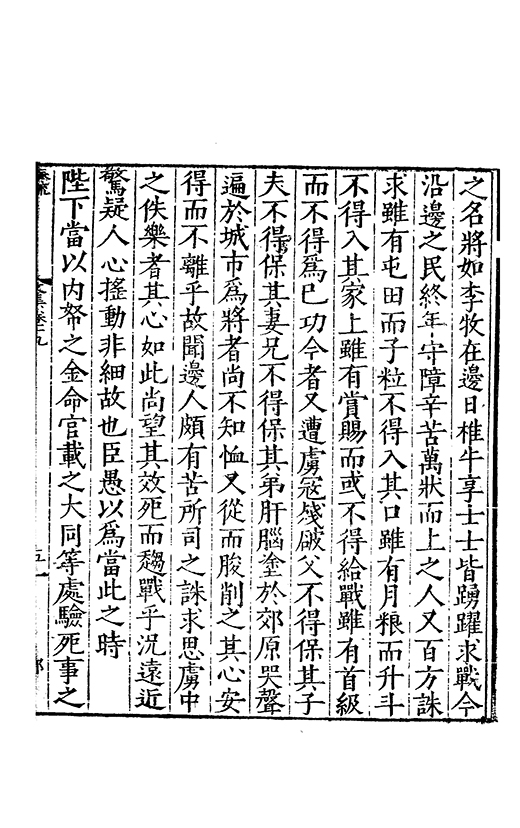 之名將如李牧在邊日椎牛享士士皆踴躍求戰今
沿邊之民終年守障辛苦萬狀而上之人又百方誅
求雖有屯田而子粒不得入其口雖有月粮而升斗
不得入其家上雖有賞賜而或不得給戰雖有首級
而不得爲已功今者又遭虜寇殘破父不得保其子
夫不得保其妻兄不得保其弟肝腦塗於郊原哭聲
遍於城市爲將者尚不知恤又從而朘削之其心安
得而不離乎故聞邊人頗有苦所司之誅求思虜中
之佚樂者其心如此尚望其效死而趨戰乎況遠近
驚疑人心搖動非細故也臣愚以爲當此之時
陛下當以内帑之金命官載之大同等處驗死事之